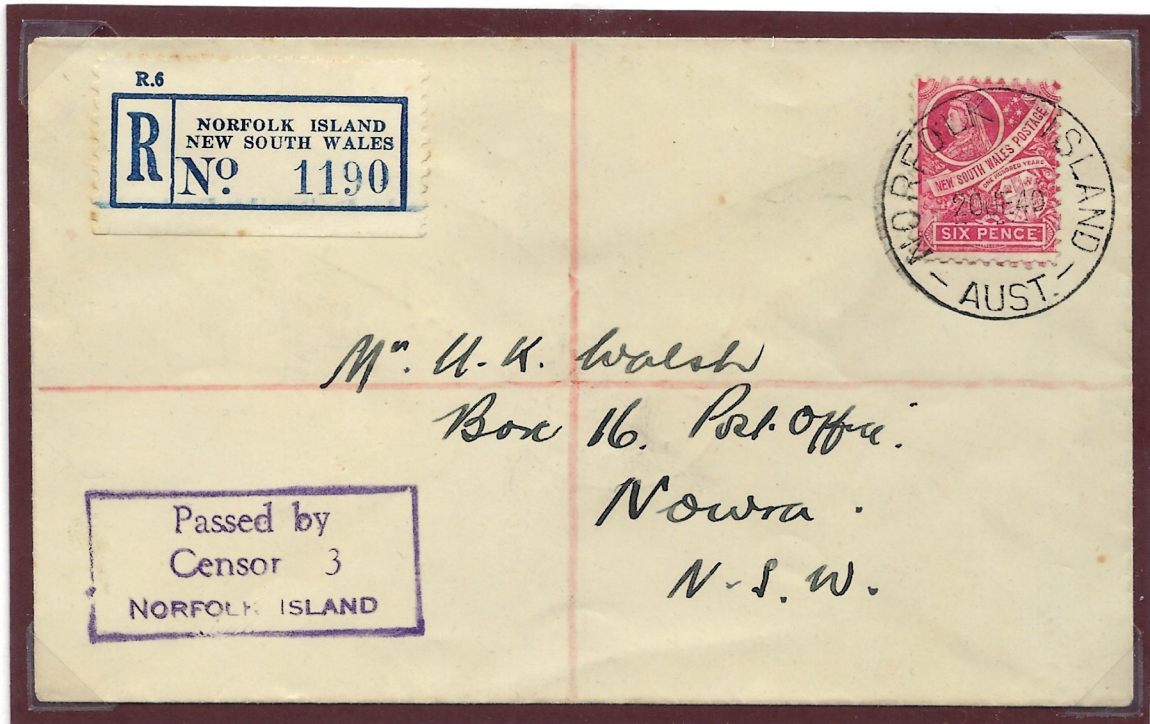 R.6
R
NORFOLK ISLAND
NEW SOUTH WALES
No. 1190
NEW SOUTH WALES POSTAGE
ONE HUNDRED YEARS
SIX PENCE
NORFOLK ISLAND
20 JE 40
- AUST. -
Mr. U. K. Walsh
Box 16. Post. Office.
Nowra.
N.S.W.
Passed by
Censor 3
NORFOLK ISLAND